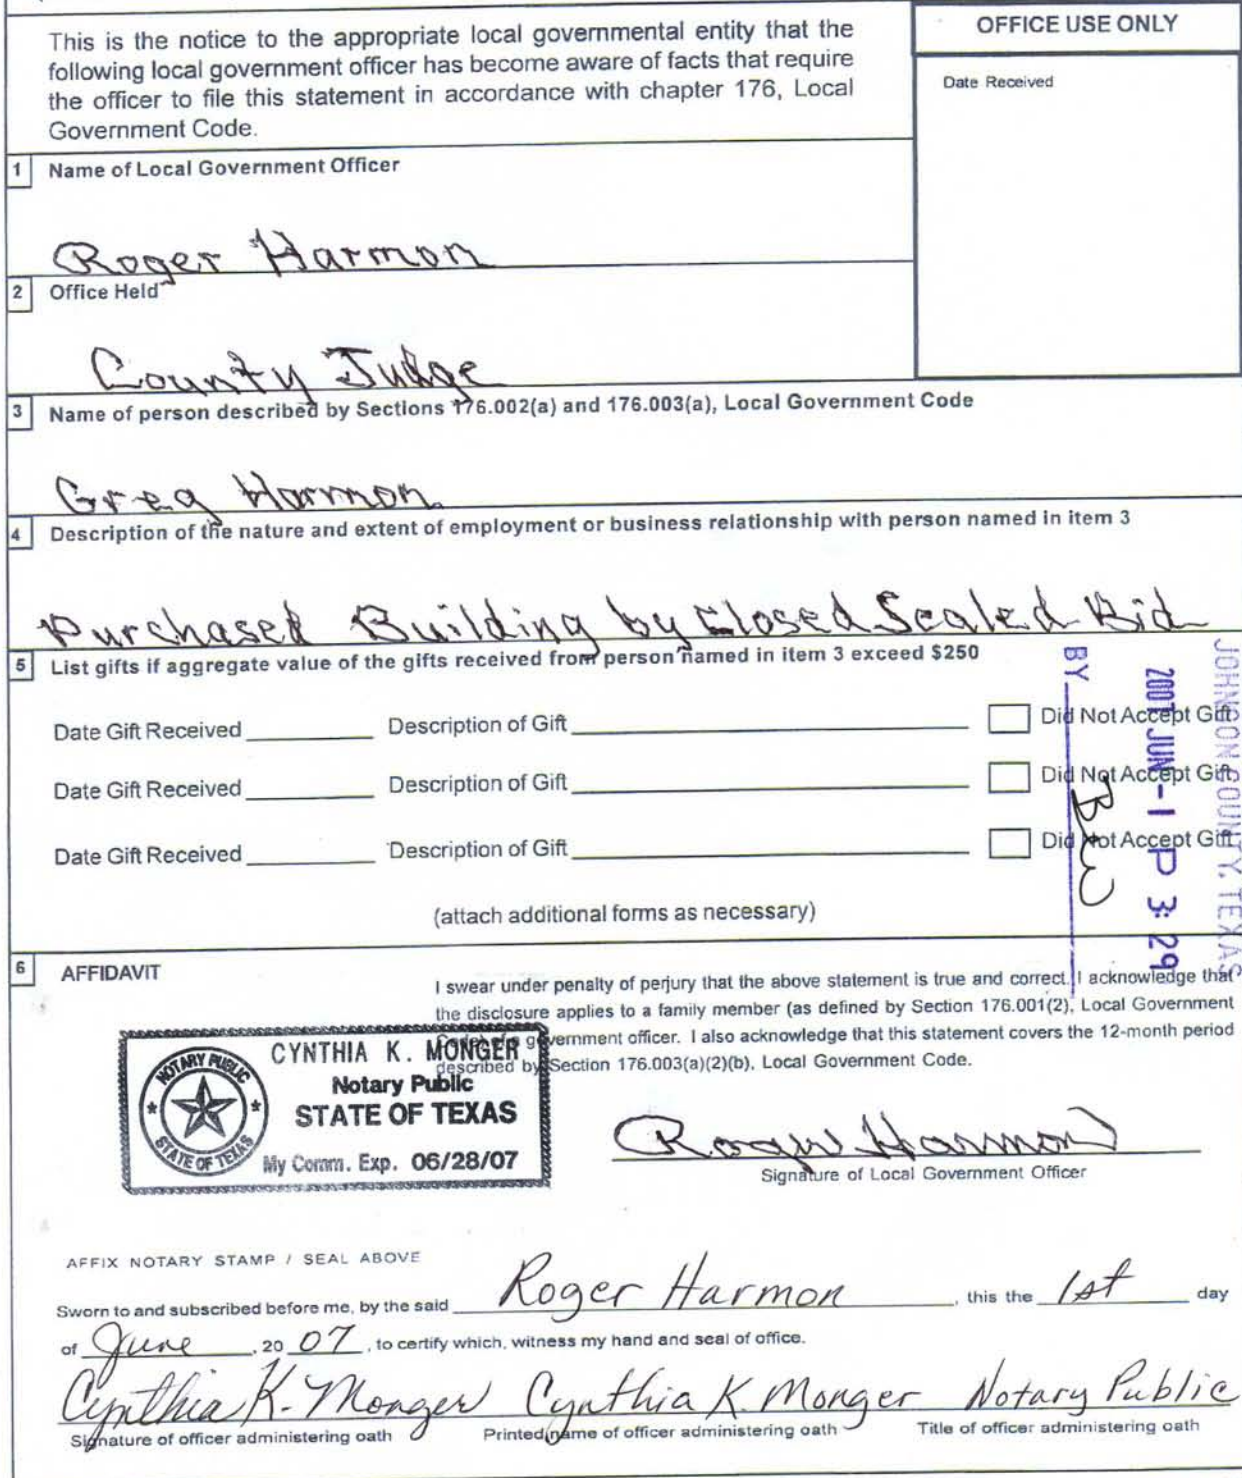 This is the notice to the appropriate local governmental entity that the
following local government officer has become aware of facts that require
the officer to file this statement in accordance with chapter 176, Local
Government Code.
OFFICE USE ONLY
Date Received
1 Name of Local Government Officer
Roger Harmon
2 Office Held
County Judge
3 Name of person described by Sections 176.002(a) and 176.003(a), Local Government Code
Greg Harmon
4 Description of the nature and extent of employment or business relationship with person named in item 3
Purchased Building by Closed Sealed Bid
5 List gifts if aggregate value of the gifts received from person named in item 3 exceed $250
Date Gift Received Description of Gift Did Not Accept Gift
Date Gift Received Description of Gift Did Not Accept Gift
Date Gift Received Description of Gift Did Not Accept Gift
(attach additional forms as necessary)
JOHNSON COUNTY, TEXAS
2007 JUN-1 P 3:29
BY
6 AFFIDAVIT
I swear under penalty of perjury that the above statement is true and correct. I acknowledge that
the disclosure applies to a family member (as defined by Section 176.001(2), Local Government
government officer. I also acknowledge that this statement covers the 12-month period
described by Section 176.003(a)(2)(b), Local Government Code.
CYNTHIA K. MONGER
Notary Public
STATE OF TEXAS
My Comm. Exp. 06/28/07
NOTARY PUBLIC
STATE OF TEXAS
Roger Harmon
Signature of Local Government Officer
AFFIX NOTARY STAMP / SEAL ABOVE
Sworn to and subscribed before me, by the said Roger Harmon, this the 1st day
of June, 20 07, to certify which, witness my hand and seal of office.
Cynthia K. Monger Cynthia K. Monger Notary Public
Signature of officer administering oath Printed name of officer administering oath Title of officer administering oath